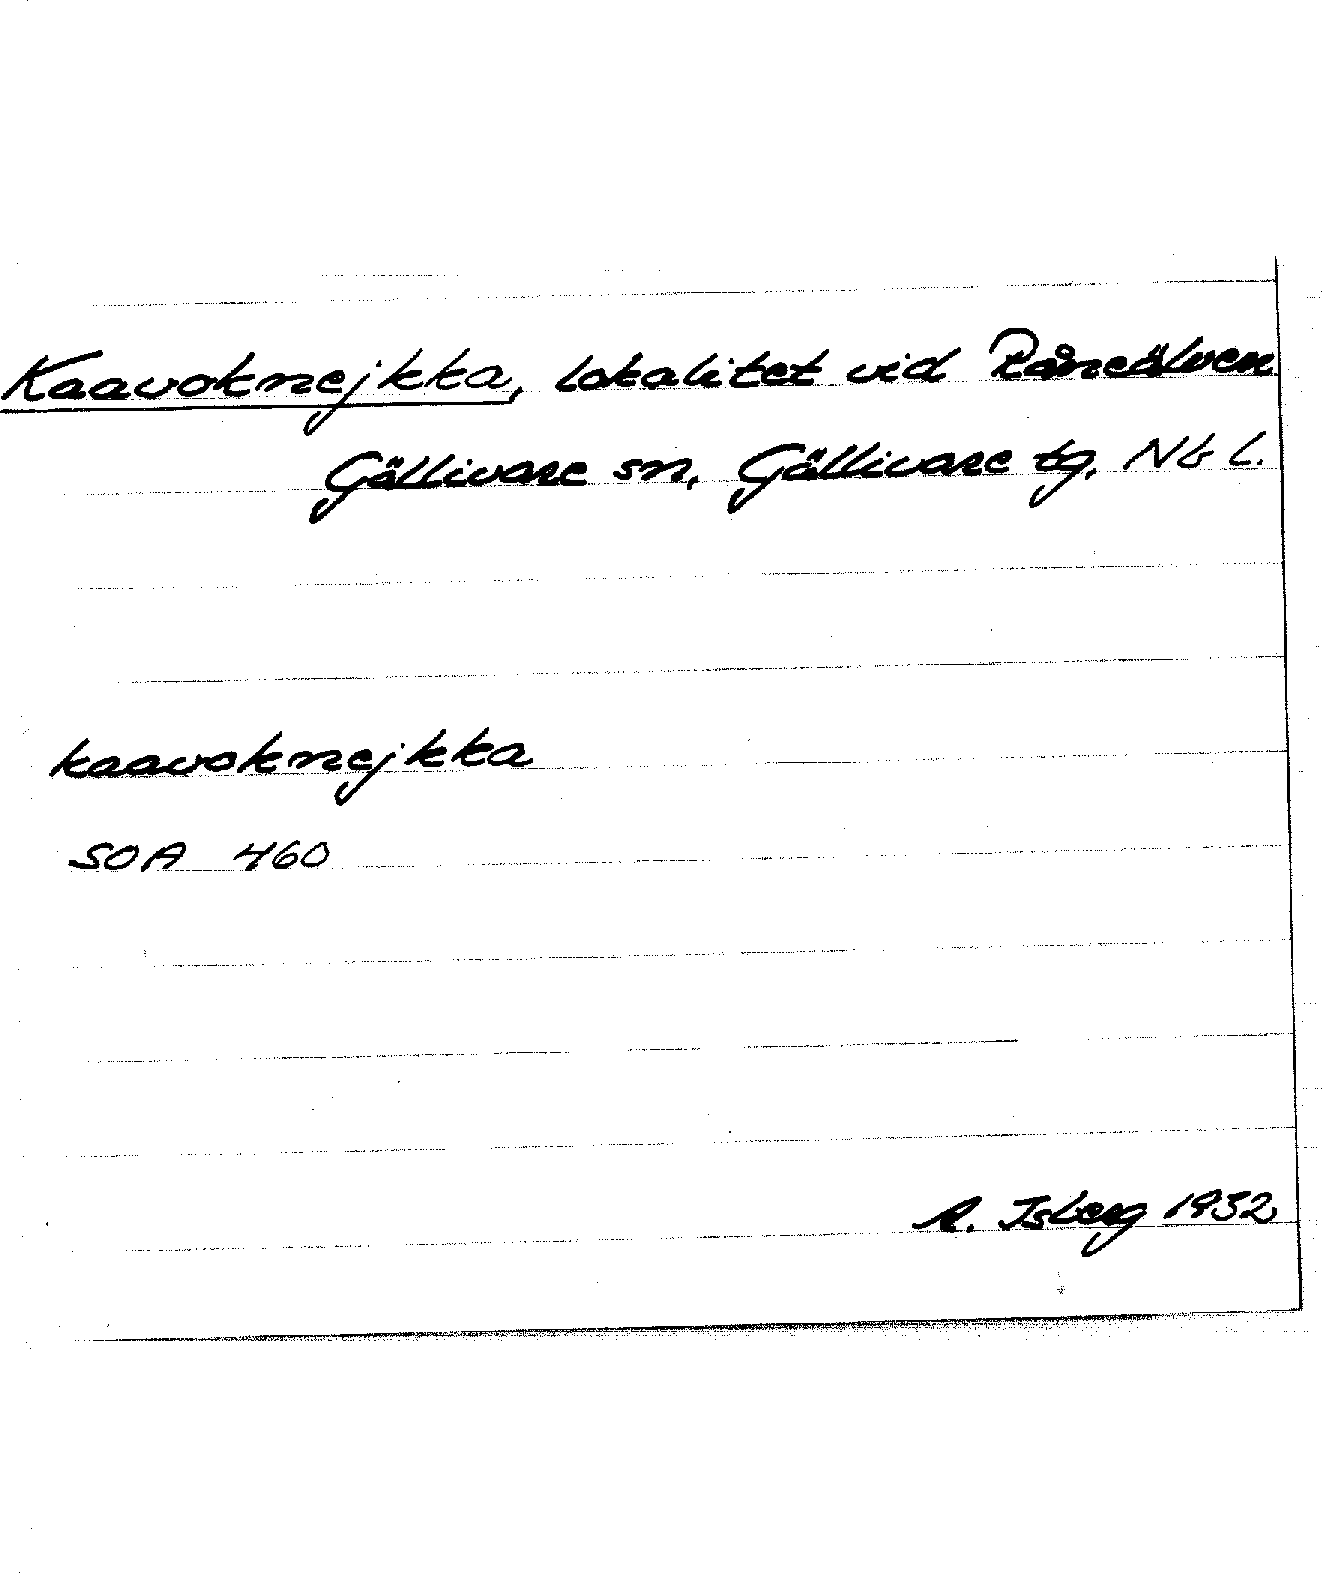 Kaavoknejkka, lokalitet vid Råneälven
Gällivare sn, Gällivare tg, Nb l.
kaavoknejkka
SOA 460
R. Isberg 1932